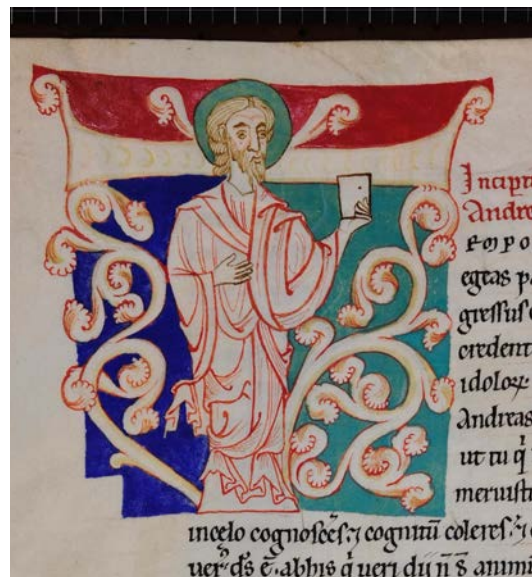 Incipit
Andre
EMPO
egeas p
gressus
credent
idolorꝝ
Andreas
ut tu q̇
meruist
incelo cognosceſ; ⁊ cognitū coleres.
uer᷒ d̄s ē. abhis q̇ ueri dii n̄ s̄ animū